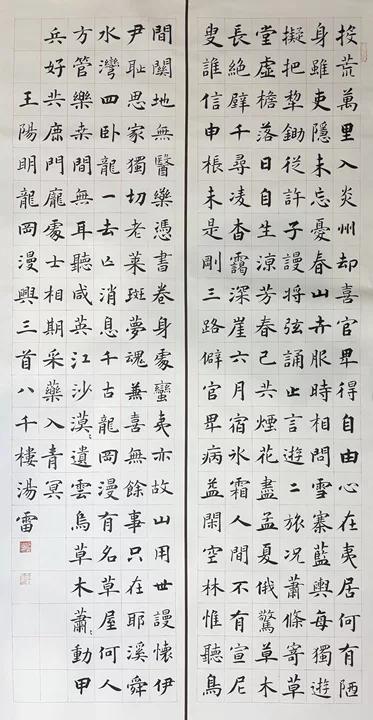 投荒萬里入炎州却喜官卑得自由心在夷居何有陋
身雖吏隱未忘憂春山卉服時相問雪寨藍輿每獨遊
擬把犁鋤從許子謾將弦誦止言遊二旅況蕭條寄草
堂虛檐落日自生涼芳春已共煙花盡孟夏俄驚草木
長絕壁千尋凌杳靄深崖六月宿冰霜人間不有宣尼
叟誰信申棖未是剛三路僻官卑病益閑空林惟聽鳥
間關地無醫藥憑書卷身處蠻夷亦故山用世謾懷伊
尹恥思家獨切老萊斑夢魂兼喜無餘事只在耶溪舜
水灣四卧龍一去亡消息千古龍岡漫有名草屋何人
方管樂桑間無耳聽咸英江沙漠〻遺雲鳥草木蕭〻動甲
兵好共鹿門龐處士相期采藥入青冥
王陽明龍岡漫興三首八千樓湯雷